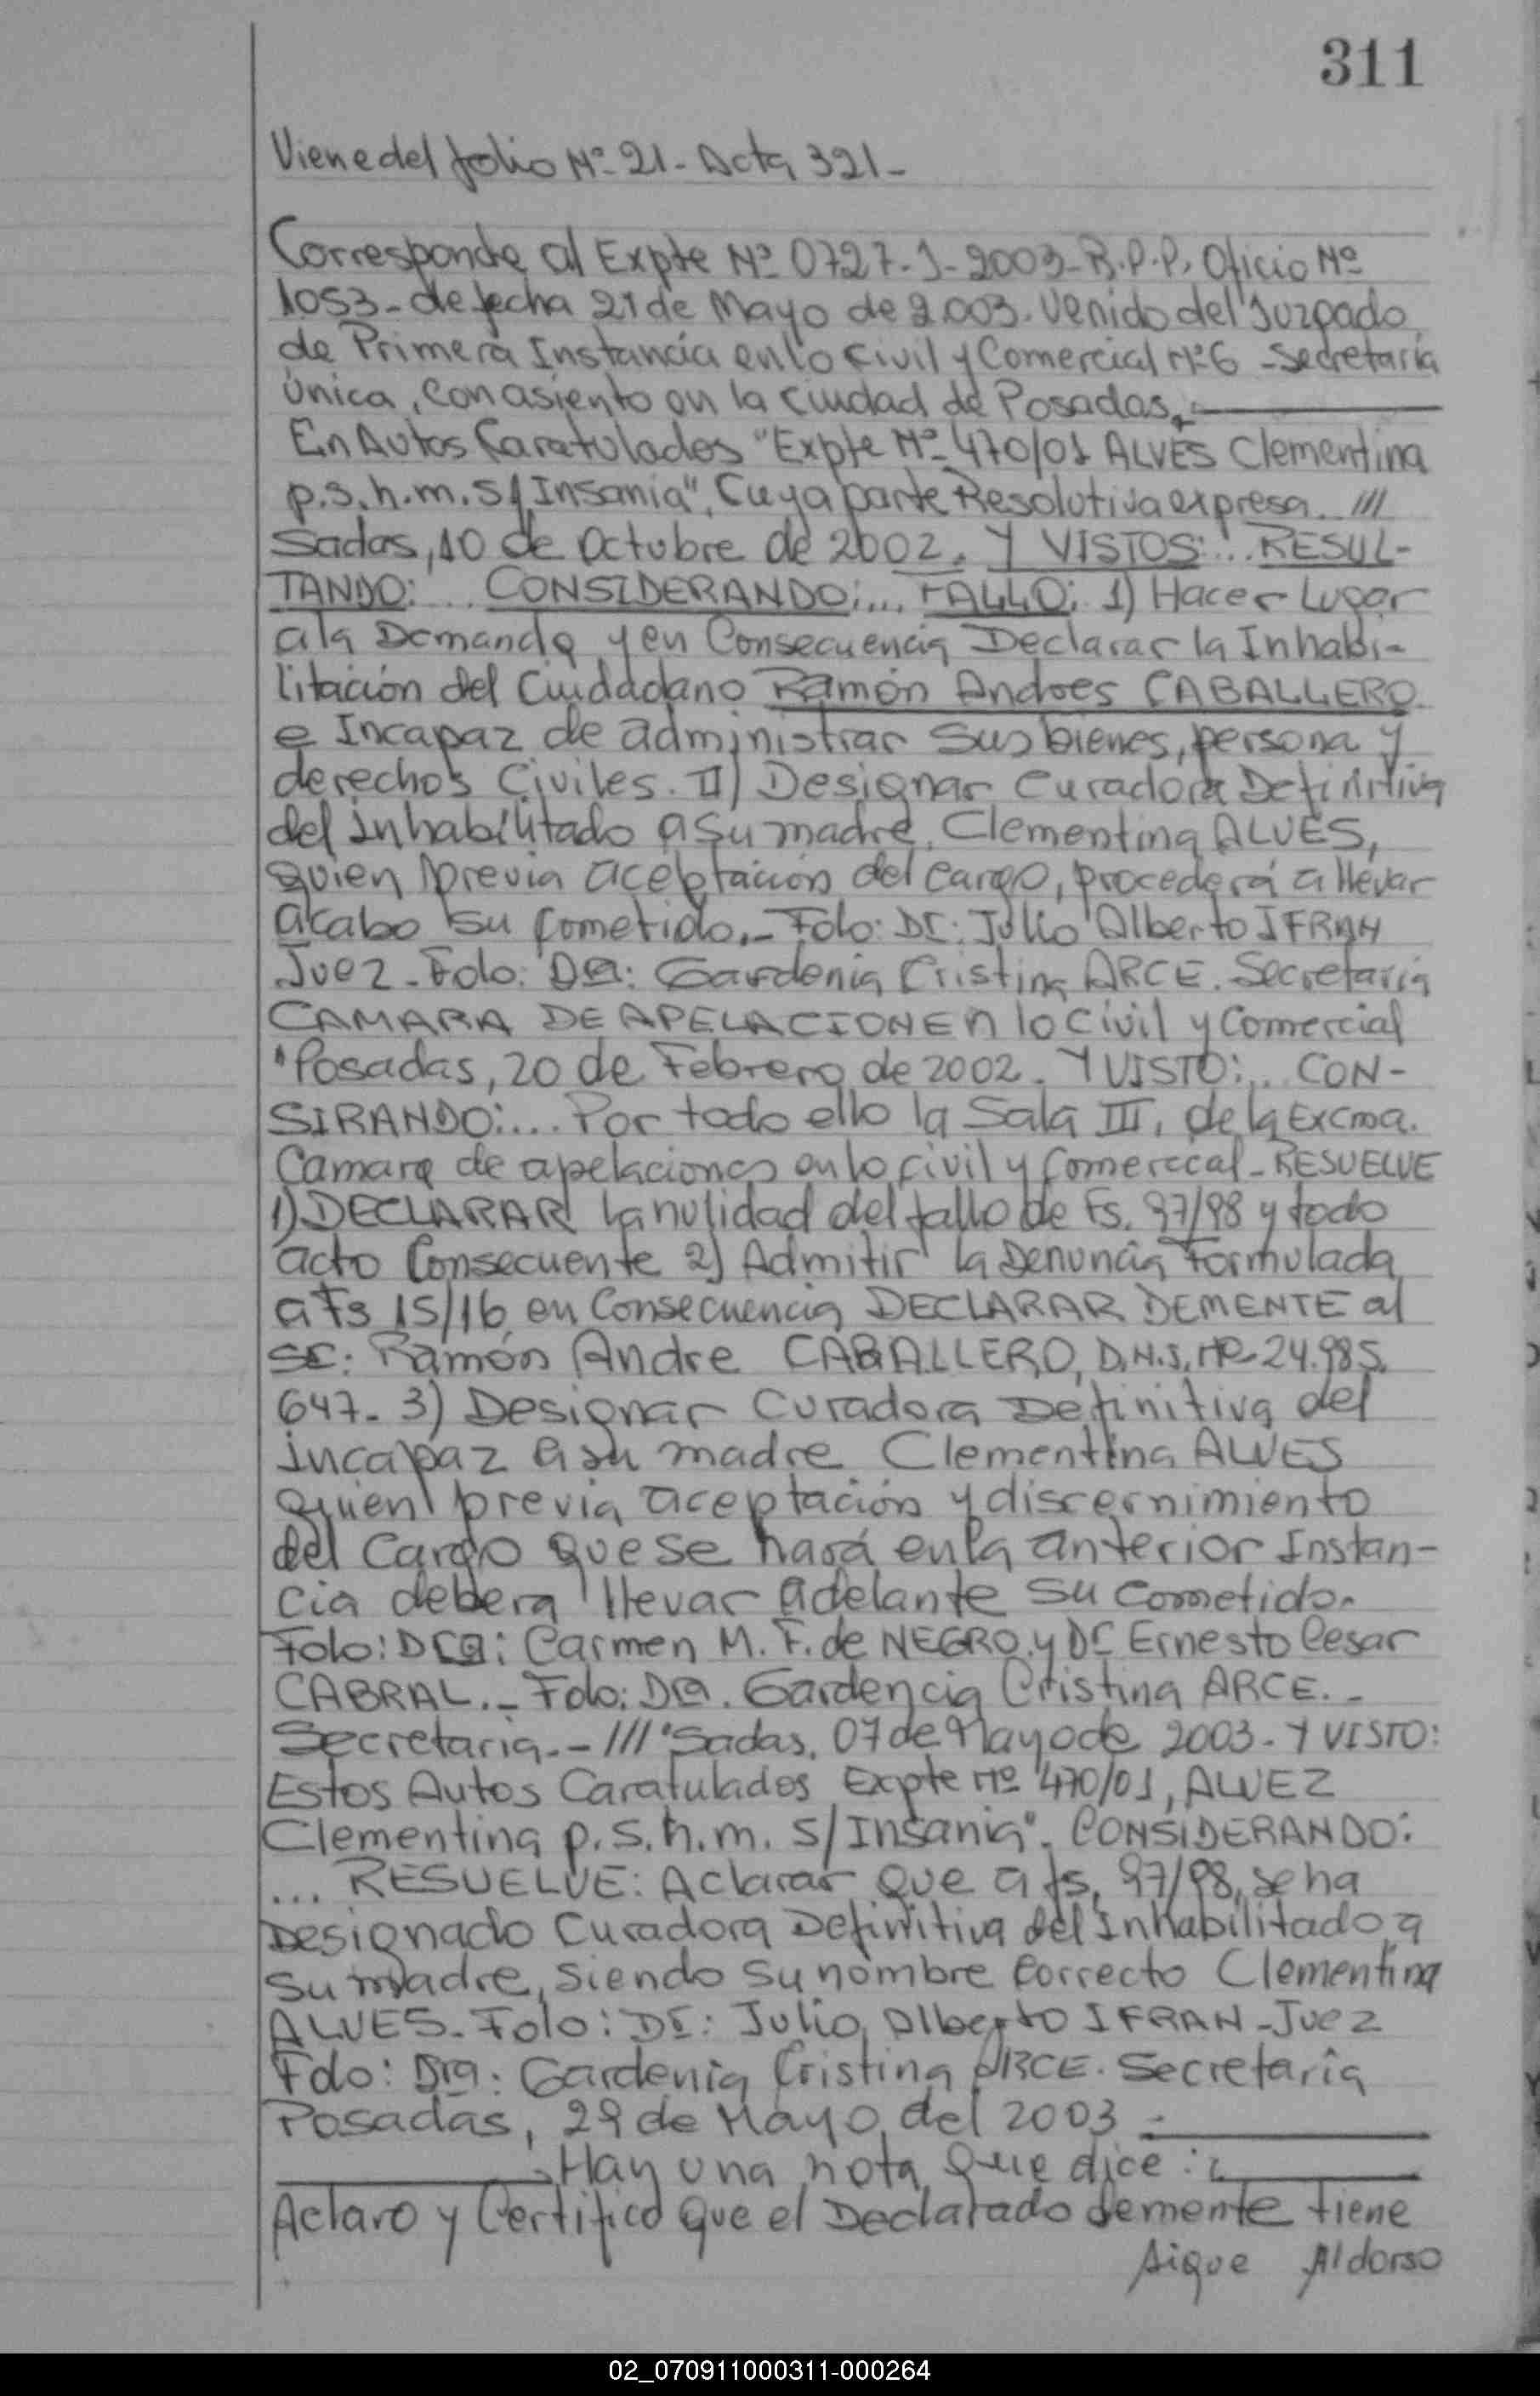 311
Viene del folio Nº 21 - Acta 321 -
Corresponde al Expte Nº 0727-J-2003-R.P.P. Oficio Nº
1053 - de fecha 21 de Mayo de 2.003. Venido del Juzgado
de Primera Instancia en lo Civil y Comercial Nº 6 - Secretaria
Única, con asiento en la ciudad de Posadas.-
En Autos Caratulados "Expte Nº 470/01 ALVES Clementina
p.s.h.m. s/Insania", Cuya parte Resolutiva expresa. ///
Sadas, 10 de Octubre de 2002. Y VISTOS:... RESUL-
TANDO:... CONSIDERANDO:... FALLO: 1) Hacer Lugar
a la Demanda y en Consecuencia Declarar la Inhabi-
litación del Ciudadano Ramón Andres CABALLERO
e Incapaz de administrar sus bienes, persona y
derechos Civiles. II) Designar Curadora Definitiva
del inhabilitado a su madre, Clementina ALVES,
quien previa aceptación del cargo, procederá a llevar
a cabo su cometido.- Fdo: Dr: Julio Alberto IFRAN
Juez - Fdo: Dra: Gardenia Cristina ARCE. Secretaria
CAMARA DE APELACION En lo Civil y Comercial
"Posadas, 20 de Febrero de 2002. Y VISTO:... CON-
SIRANDO:... Por todo ello la Sala III, de la Excma.
Camara de apelaciones en lo civil y Comerccal - RESUELVE
1) DECLARAR la nulidad del fallo de Fs. 97/98 y todo
acto Consecuente 2) Admitir la Denuncia Formulada
a Fs 15/16 en Consecuencia DECLARAR DEMENTE al
Sr: Ramón Andre CABALLERO, D.N.I. Nº 24.985.
647. 3) Designar Curadora Definitiva del
incapaz a su madre Clementina ALVES
quien previa aceptación y discernimiento
del Cargo que se hará en la anterior Instan-
cia debera llevar adelante su cometido.
Fdo: Dra: Carmen M. F. de NEGRO y Dr Ernesto Cesar
CABRAL.- Fdo: Dra. Gardencia Cristina ARCE.-
Secretaria.- ///"Sadas, 07 de Mayo de 2003 - Y VISTO:
Estos Autos Caratulados Expte Nº 470/01, ALVEZ
Clementina p.s.h.m. s/Insania". CONSIDERANDO:
... RESUELVE: Aclarar que a fs. 97/98, se ha
Designado Curadora Definitiva del Inhabilitado a
su madre, siendo su nombre correcto Clementina
ALVES. Fdo: Dr: Julio Alberto IFRAN - Juez
Fdo: Dra: Gardenia Cristina ARCE. Secretaria
Posadas, 29 de Mayo del 2003 -
Hay una nota que dice:
Aclaro y Certifico que el Declarado demente tiene
Sigue Al dorso
02_070911000311-000264